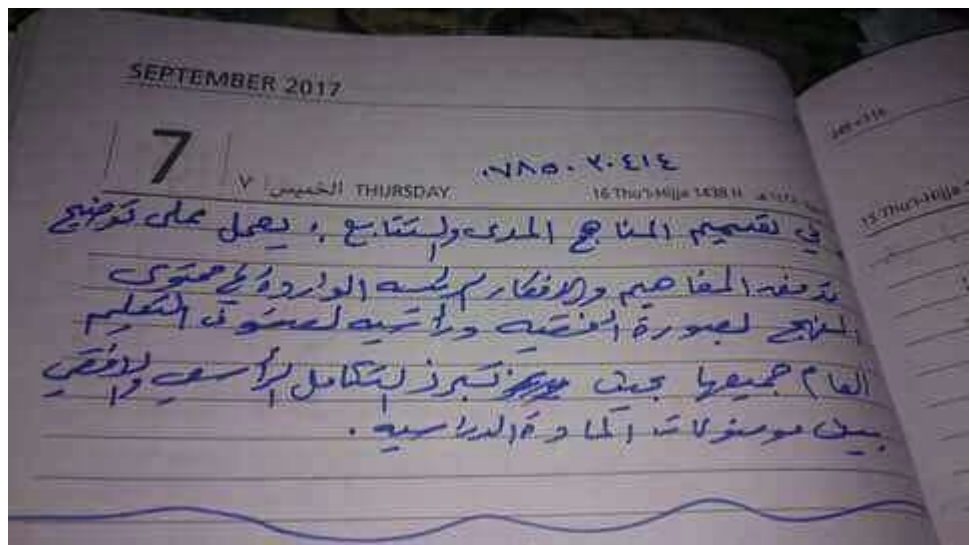 SEPTEMBER 2017
7
٠٧٨٥٠٢٠٤١٤
٧ الخميس THURSDAY 16 Thu'l-Hijja 1438 H
في تصميم المناهج المدى والتتابع : يعمل على توضيح
تدفق المفاهيم والافكار الرئيسه الواردة في محتوى
المنهج بصورة افقيه ورأسيه لصفوف التعليم
العام جميعها بحيث تبرز التكامل الرأسي والافقي
بين موضوعات المادة الدراسيه .
15 Thu'l-Hijja